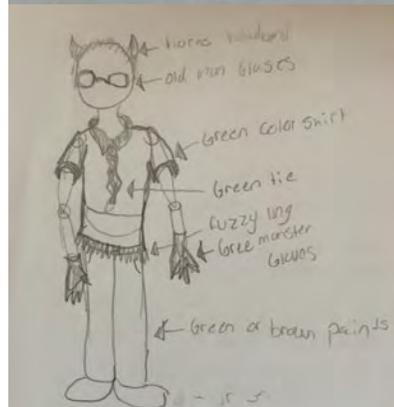 horns
old man Glases
Green color shirt
Green tie
fuzzy
Gree monster
Gloves
Green or brown paints